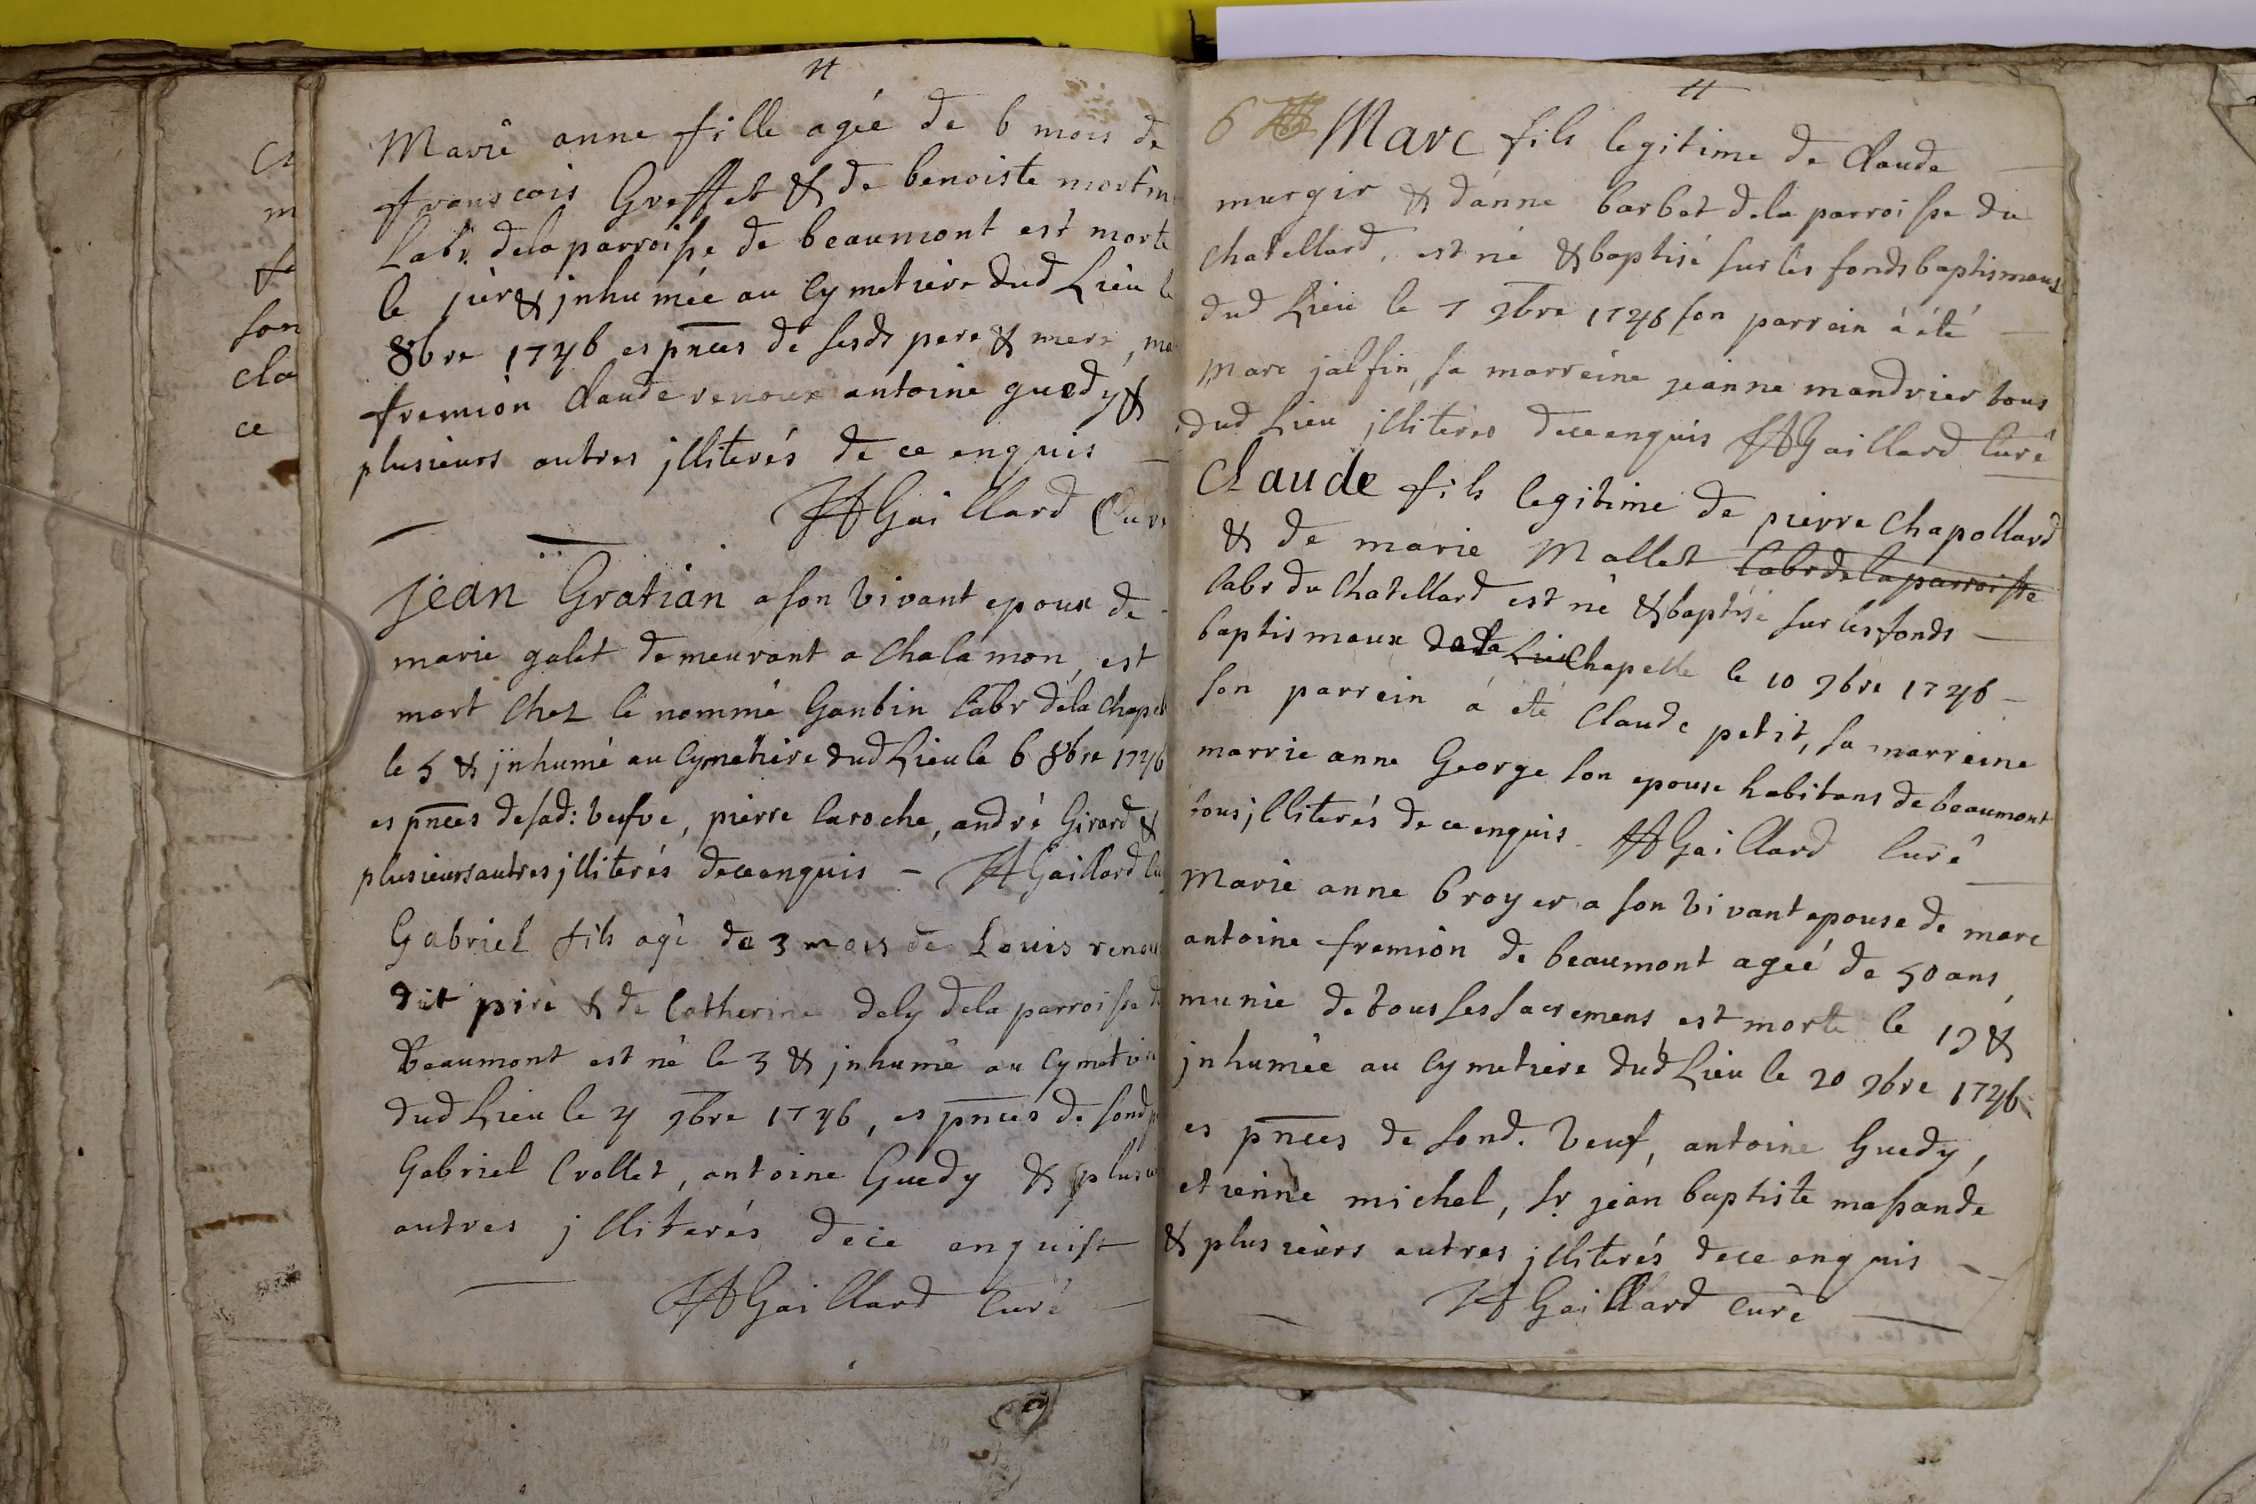 Marie anne fille agée de 6 mois de
francois Greffet & de benoiste mortin
Labr. dela parroisse de beaumont est morte
le jer & jnhumée au Cymetiere dud Lieu le
8bre 1746 es pnces de sesds pere & mere,
fremion Claude renoux antoine guedy &
plusieurs autres jlliterés de ce enquis
HGaillard Cure
Jean Gratian a son vivant epoux de
marie galet demeurant a Chalamon, est
mort Chez le nommé Gonbin labr dela Chapel
le 5 & jnhumé au Cymetiere dud Lieu le 6 8bre 1746
es pnces de sad: veufve, pierre laroche, andré Girard &
plusieurs autres jlliterés de ce enquis - HGaillard Cu
Gabriel fils agé de 3 mois de Louis renou
dit piré & de Catherine dely dela parroisse de
beaumont est né le 3 & jnhumé au Cymetire
dud Lieu le 4 9bre 1746, es pnces de sond p
Gabriel Crollet, antoine Guedy & plusie
autres jlliterés de ce enquist
HGaillard Curé
6
Marc fils legitime de Claude
murgir & danne barbet dela parroisse du
Chatellard, est né & baptisé sur les fonds baptismaux
dud Lieu le 7 9bre 1746 son parrain à été
marc jalfin, sa marreine jeanne mandrier tous
dud Lieu jlliteres de ce enquis HGaillard Curé
Claude fils legitime de pierre Chapollard
& de marie Mallet labr de la parroisse
labr du Chatellard est né & baptisé sur les fonds
baptismaux de la Lieu Chapelle le 10 9bre 1746
son parrein à été Claude petit, sa marreine
marrie anne George son epouse habitans de beaumont
tous jlliterés de ce enquis HGaillard Curé
Marie anne broyer a son vivant epouse de marc
antoine fremion de beaumont ageé de 50 ans,
munie de tous ses sacremens est morte le 19 &
jnhumée au Cymetiere dud Lieu le 20 9bre 1746
es pnces de sond. veuf, antoine Guedy,
etienne michel, sr jean baptiste massande
& plusieurs autres jlliterés de ce enquis
HGaillard Curé